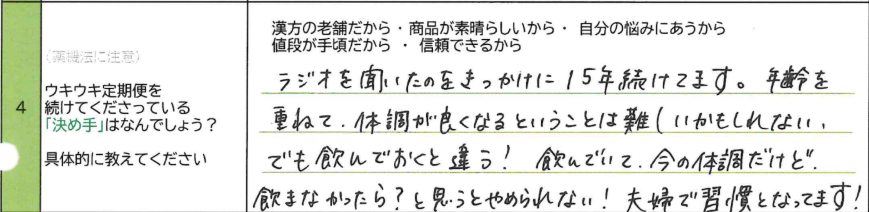 漢方の老舗だから ・ 商品が素晴らしいから ・ 自分の悩みにあうから
値段が手頃だから ・ 信頼できるから
(薬機法に注意)
4
ウキウキ定期便を
続けてくださっている
「決め手」はなんでしょう？
具体的に教えてください
ラジオを聞いたのをきっかけに15年続けてます。年齢を
重ねて、体調が良くなるということは難しいかもしれない、
でも飲んでおくと違う！ 飲んでいて、今の体調だけど、
飲まなかったら？と思うとやめられない！夫婦で習慣となってます！